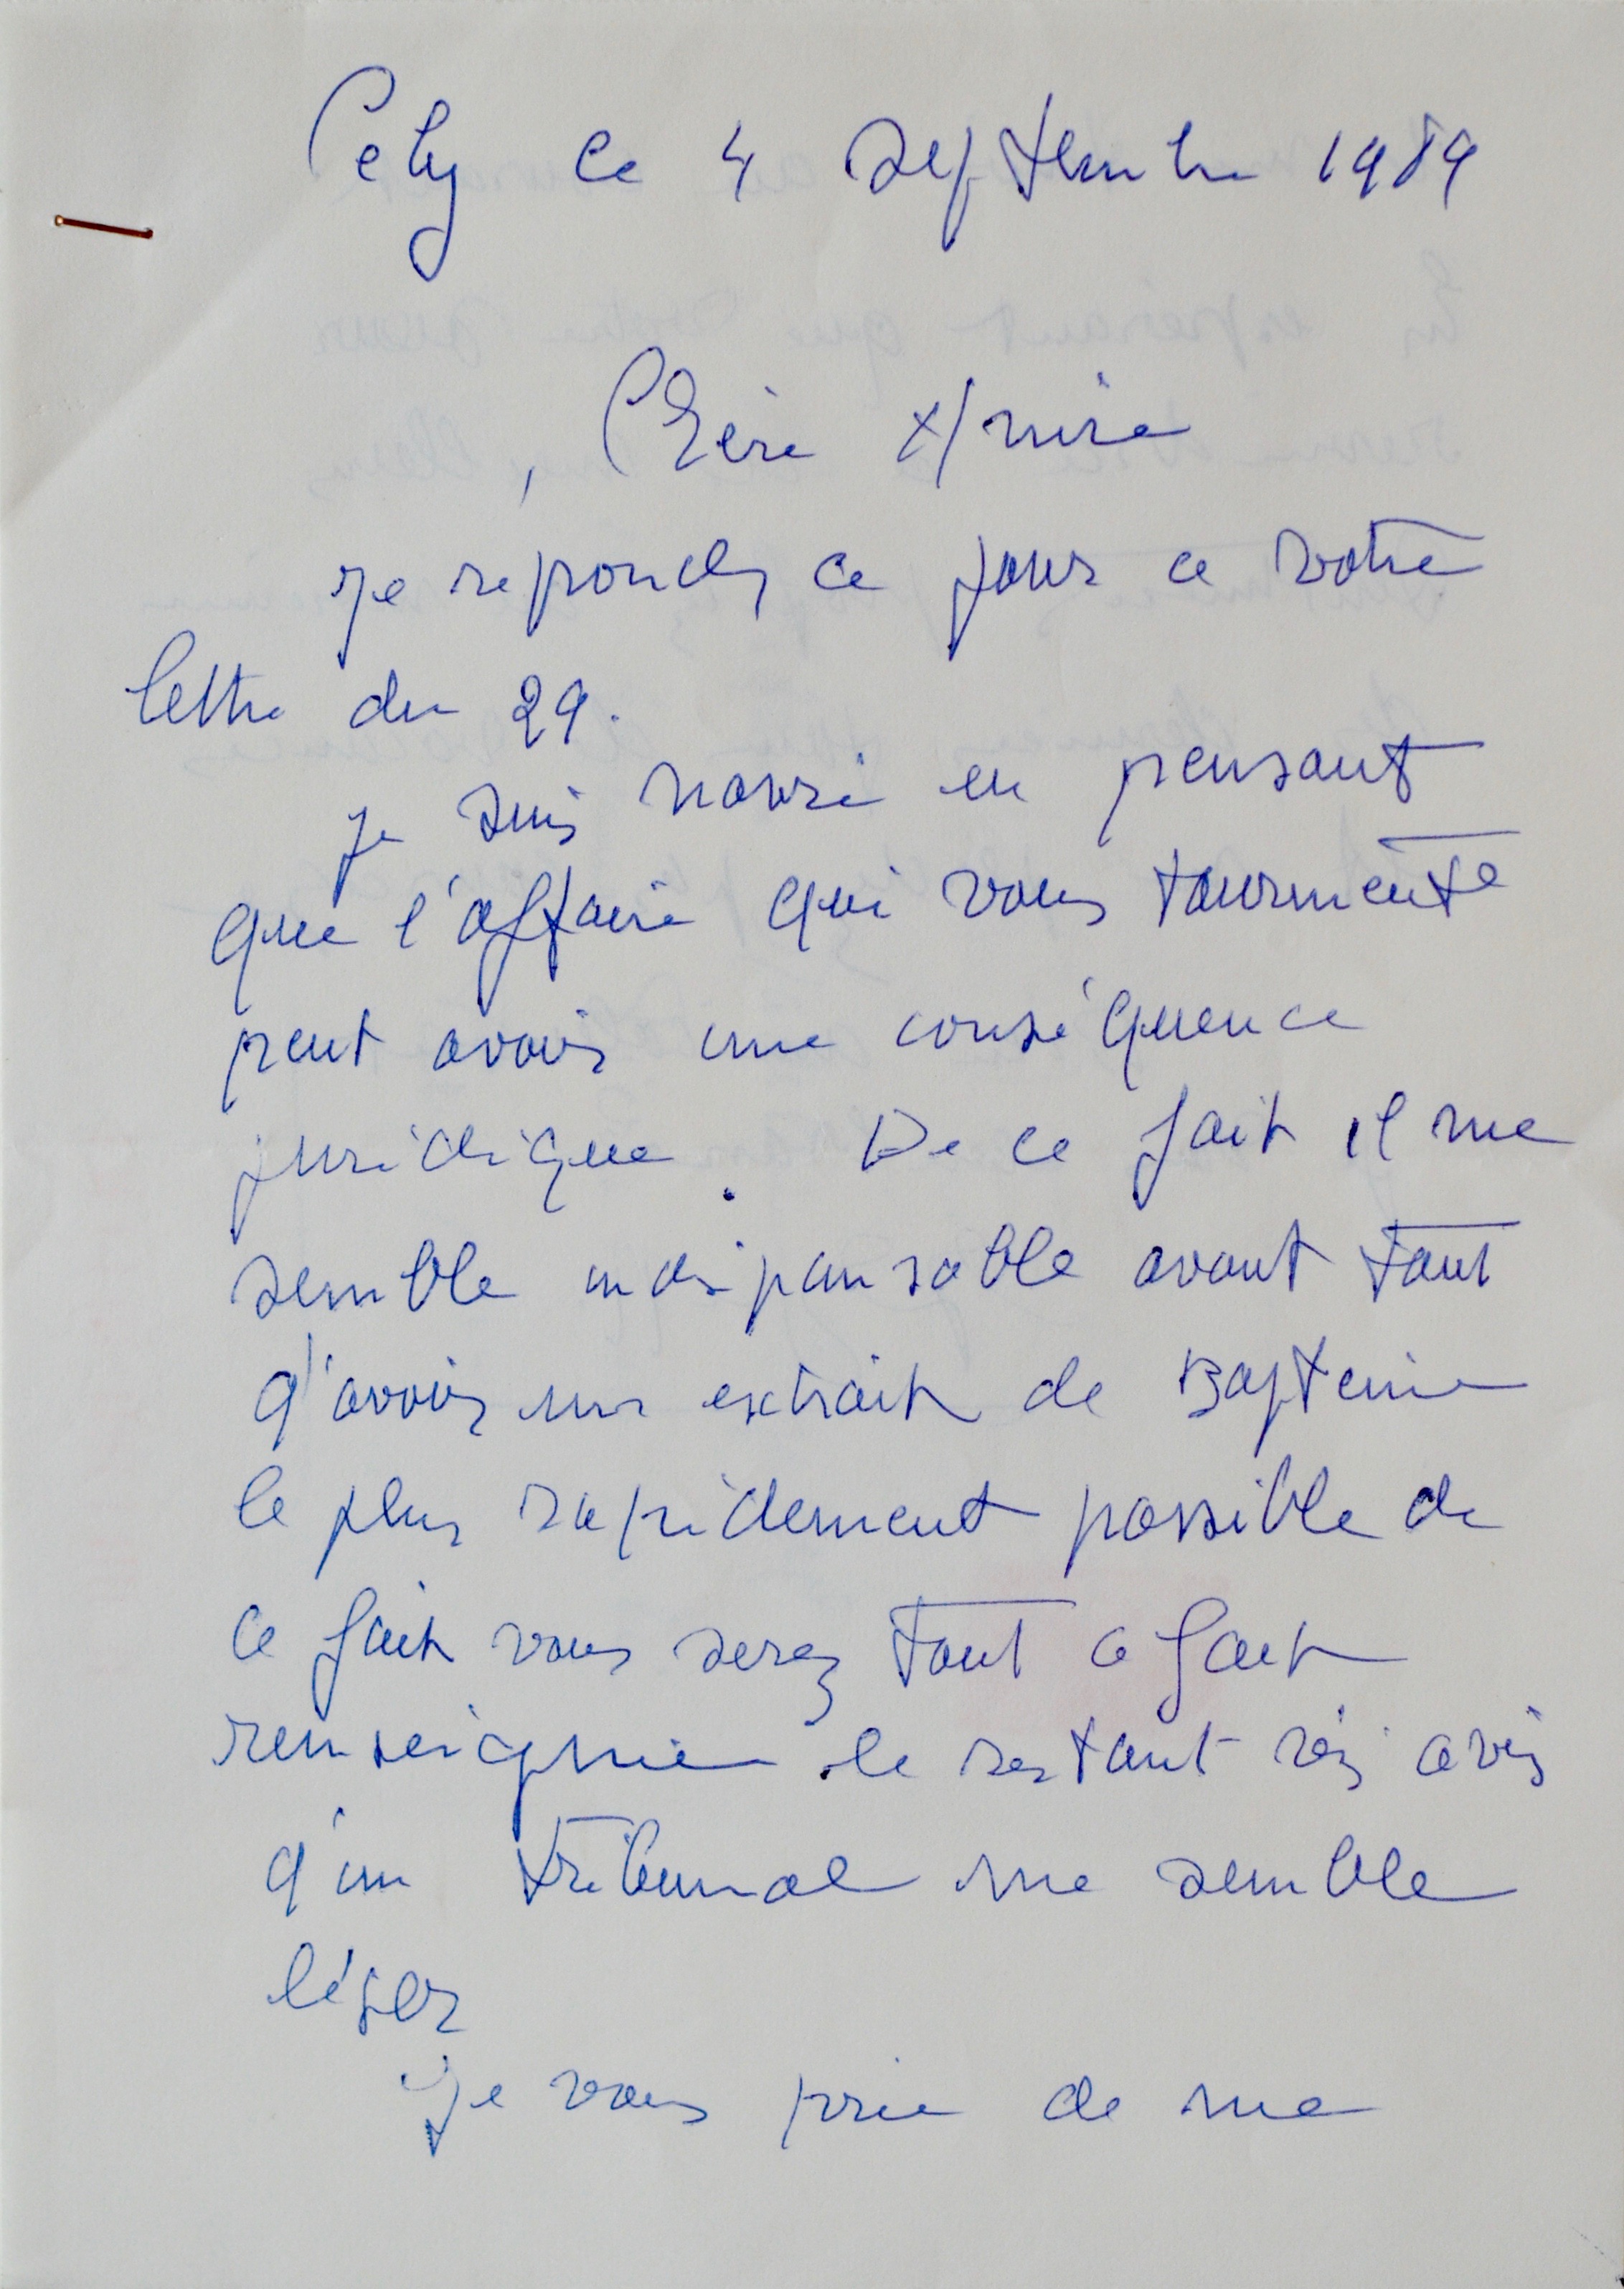 Cely le 4 septembre 1989
Chère Amie
je réponds ce jour a votre
lettre du 29.
je suis navré en pensant
que l'affaire qui vous tourmente
peut avoir une conséquence
juridique. De ce fait il me
semble indispansable avant tout
d'avoir un extrait de Bapteme
le plus rapidement possible de
ce fait vous serez tout a fait
renseignée le restant vis avis
d'un tribunal me semble
léger
Je vous prie de me